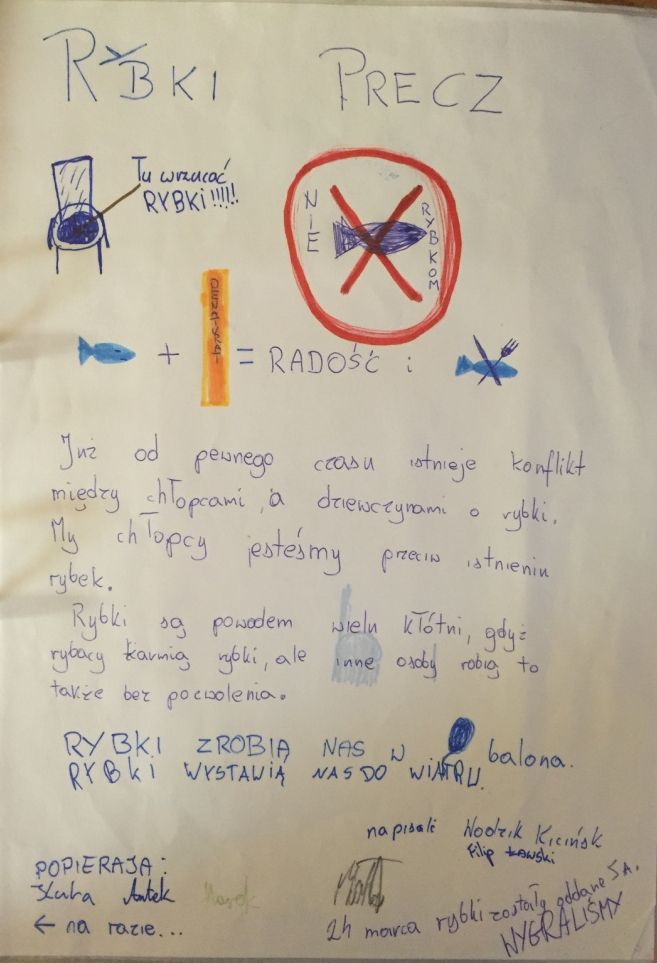 RYBKI PRECZ
Tu wrzucać
RYBKI!!!!!
NIE
RYBKOM
DENATURAT
+ = RADOŚĆ i
Już od pewnego czasu istnieje konflikt
między chłopcami, a dziewczynami o rybki.
My chłopcy jesteśmy przeciw istnieniu
rybek.
Rybki są powodem wielu kłótni, gdyż
rybacy karmią rybki, ale inne osoby robią to
także bez pozwolenia.
RYBKI ZROBIĄ NAS W balona.
RYBKI WYSTAWIĄ NAS DO WIATRU.
napisali Kiciński
Filip Ławski
POPIERAJĄ:
Kuba Antek Marek
← na razie...
24 marca rybki zostały oddane SA.
WYGRALIŚMY